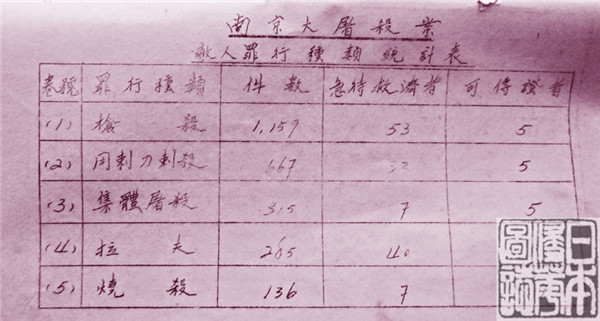 南京大屠殺案
敵人罪行種類統計表
卷號 罪行種類 件數 急待救濟者 可傳證者
(1) 槍殺 1,159 53 5
(2) 用刺刀刺殺 5
(3) 集體屠殺 315 7 5
(4) 拉夫 40
(5) 燒殺 136 7
日本侵華圖誌